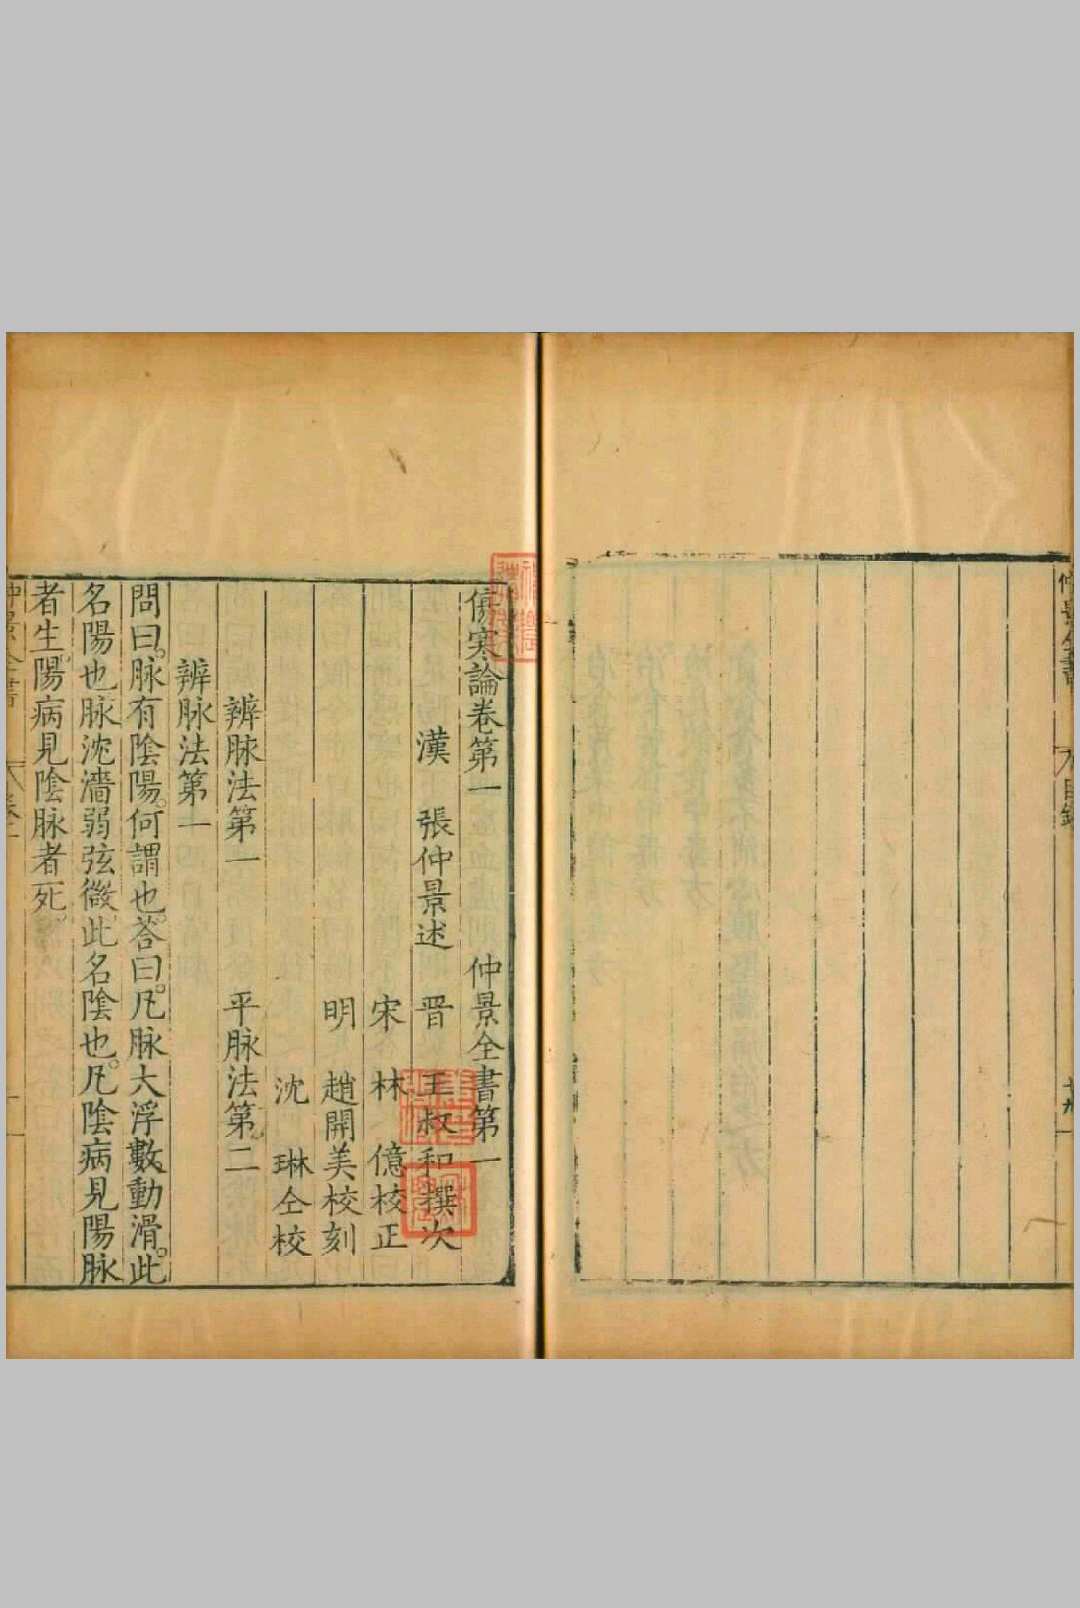 仲景全書 目錄
傷寒論卷第一 仲景全書第一
漢 張仲景述 晋 王叔和撰次
宋 林 億校正
明 趙開美校刻
沈 琳仝校
辨脉法第一 平脉法第二
辨脉法第一
問曰。脉有陰陽。何謂也。荅曰。凡脉大浮數動滑。此
名陽也。脉沈濇弱弦微。此名陰也。凡陰病見陽脉
者生。陽病見陰脉者死。
仲景全書